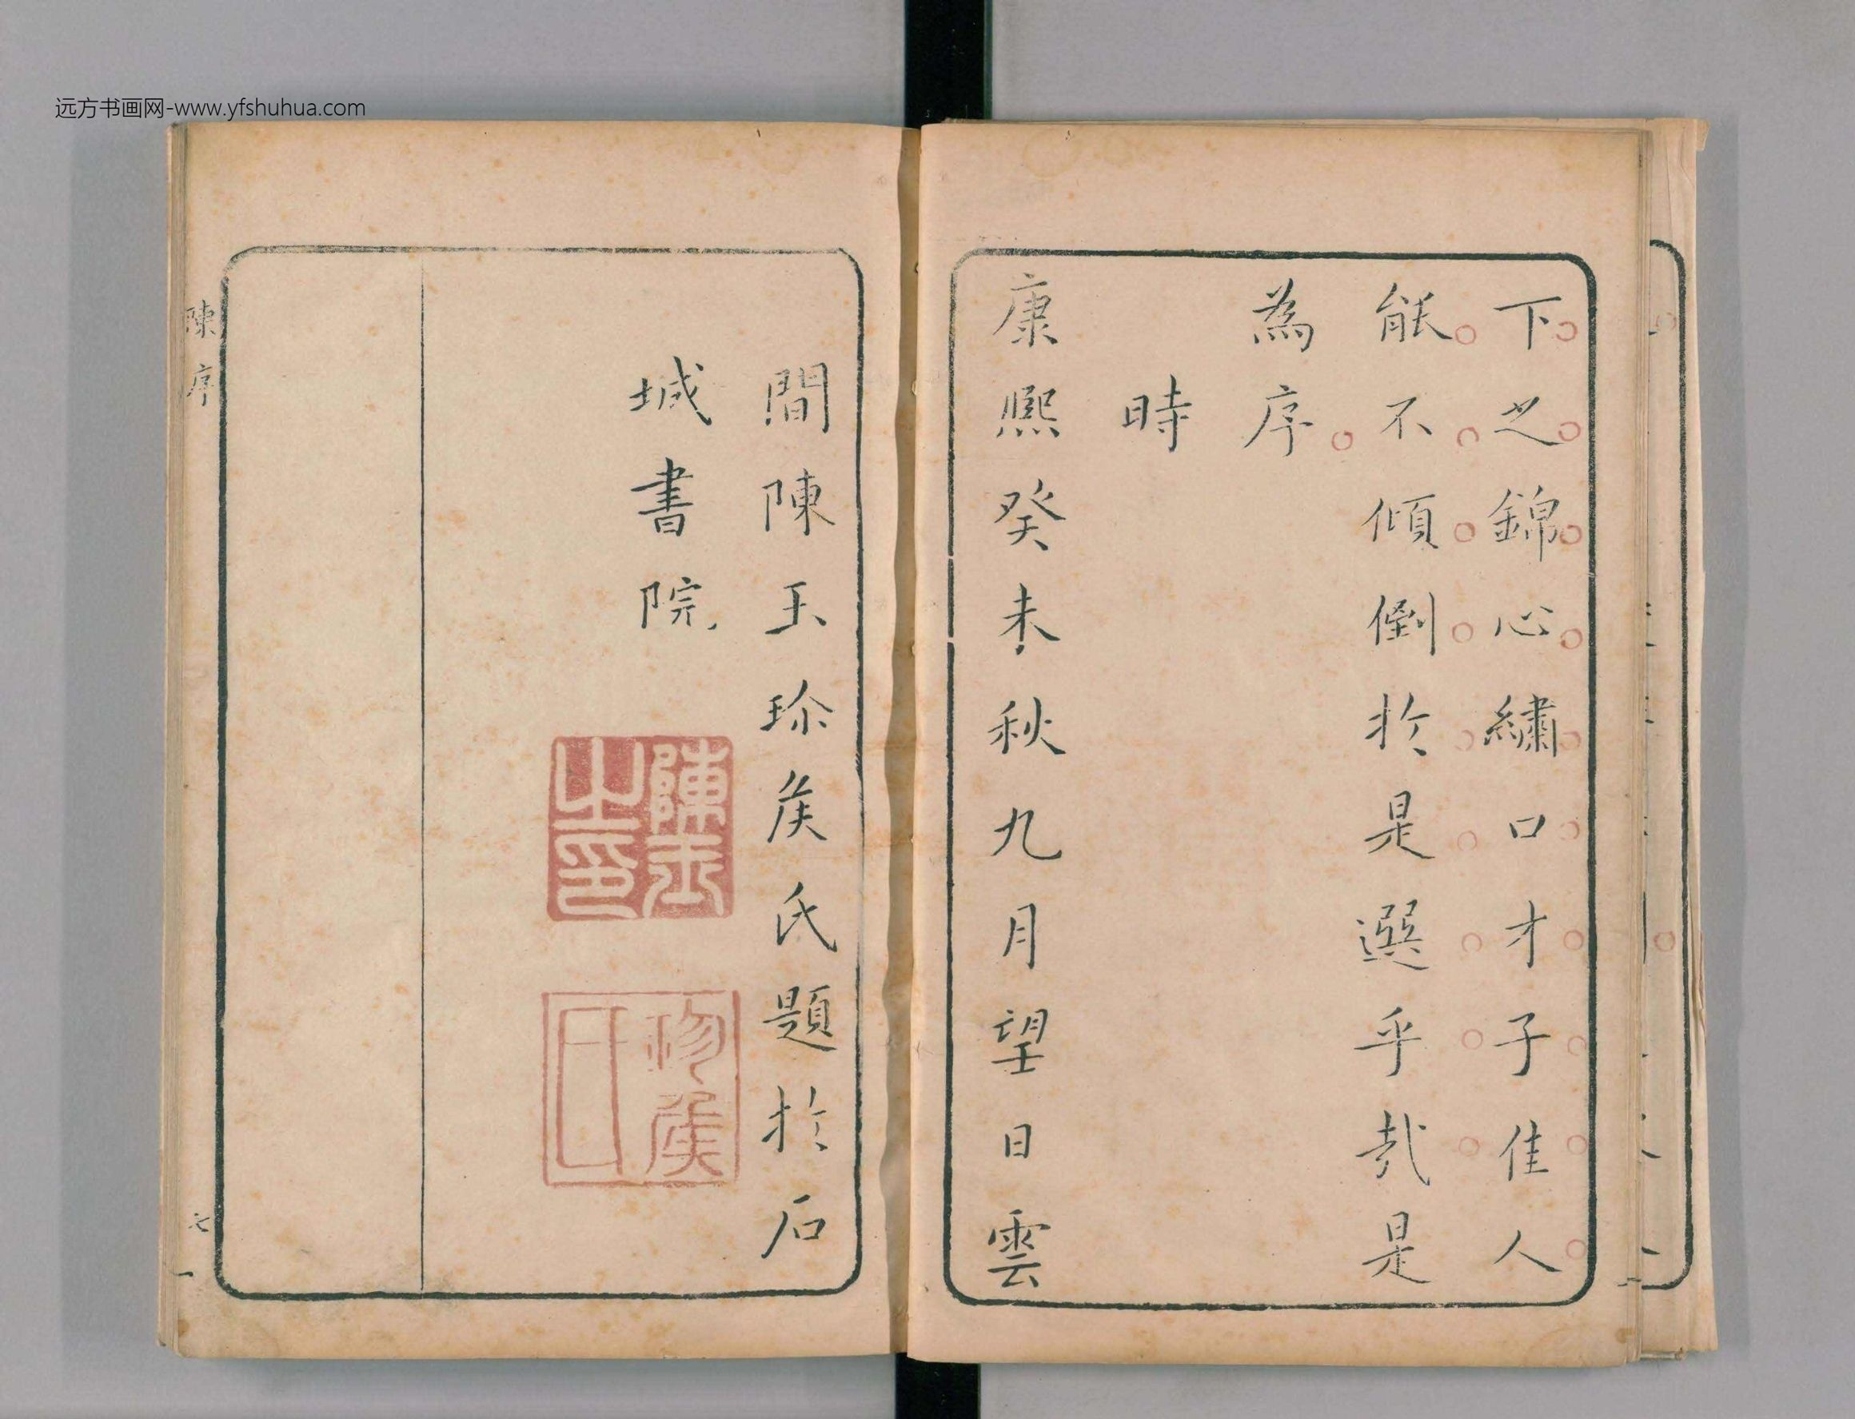 远方书画网-www.yfshuhua.com
下之錦心繡口才子佳人
能不傾倒於是選乎哉是
為序
時
康熙癸未秋九月望日雲
間陳玉珍侯氏題於石
城書院
陳玉之印
珍侯
陳序
七